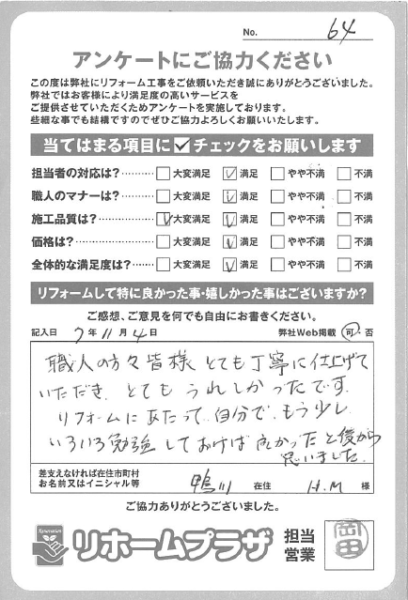 No. 64
アンケートにご協力ください
この度は弊社にリフォーム工事をご依頼いただき誠にありがとうございました。
弊社ではお客様により満足度の高いサービスを
ご提供させていただくためアンケートを実施しております。
些細な事でも結構ですのでぜひご協力よろしくお願いいたします。
当てはまる項目に✓チェックをお願いします
担当者の対応は?………… □大変満足 ☑満足 □やや不満 □不満
職人のマナーは?………… □大変満足 ☑満足 □やや不満 □不満
施工品質は?……………… ☑大変満足 ☑満足 □やや不満 □不満
価格は?…………………… □大変満足 ☑満足 □やや不満 □不満
全体的な満足度は?……… □大変満足 ☑満足 □やや不満 □不満
リフォームして特に良かった事・嬉しかった事はございますか?
ご感想、ご意見を何でも自由にお書きください。
記入日 7年11月4日 弊社Web掲載 可・否
職人の方々皆様とても丁寧に仕上げて
いただき、とてもうれしかったです。
リフォームにあたって自分で、もう少し
いろいろ勉強しておけば良かったと後から
思いました。
差支えなければ在住市町村
お名前又はイニシャル等 鴨川 在住 H.M 様
ご協力ありがとうございました。
リホームプラザ 担当営業 岡田